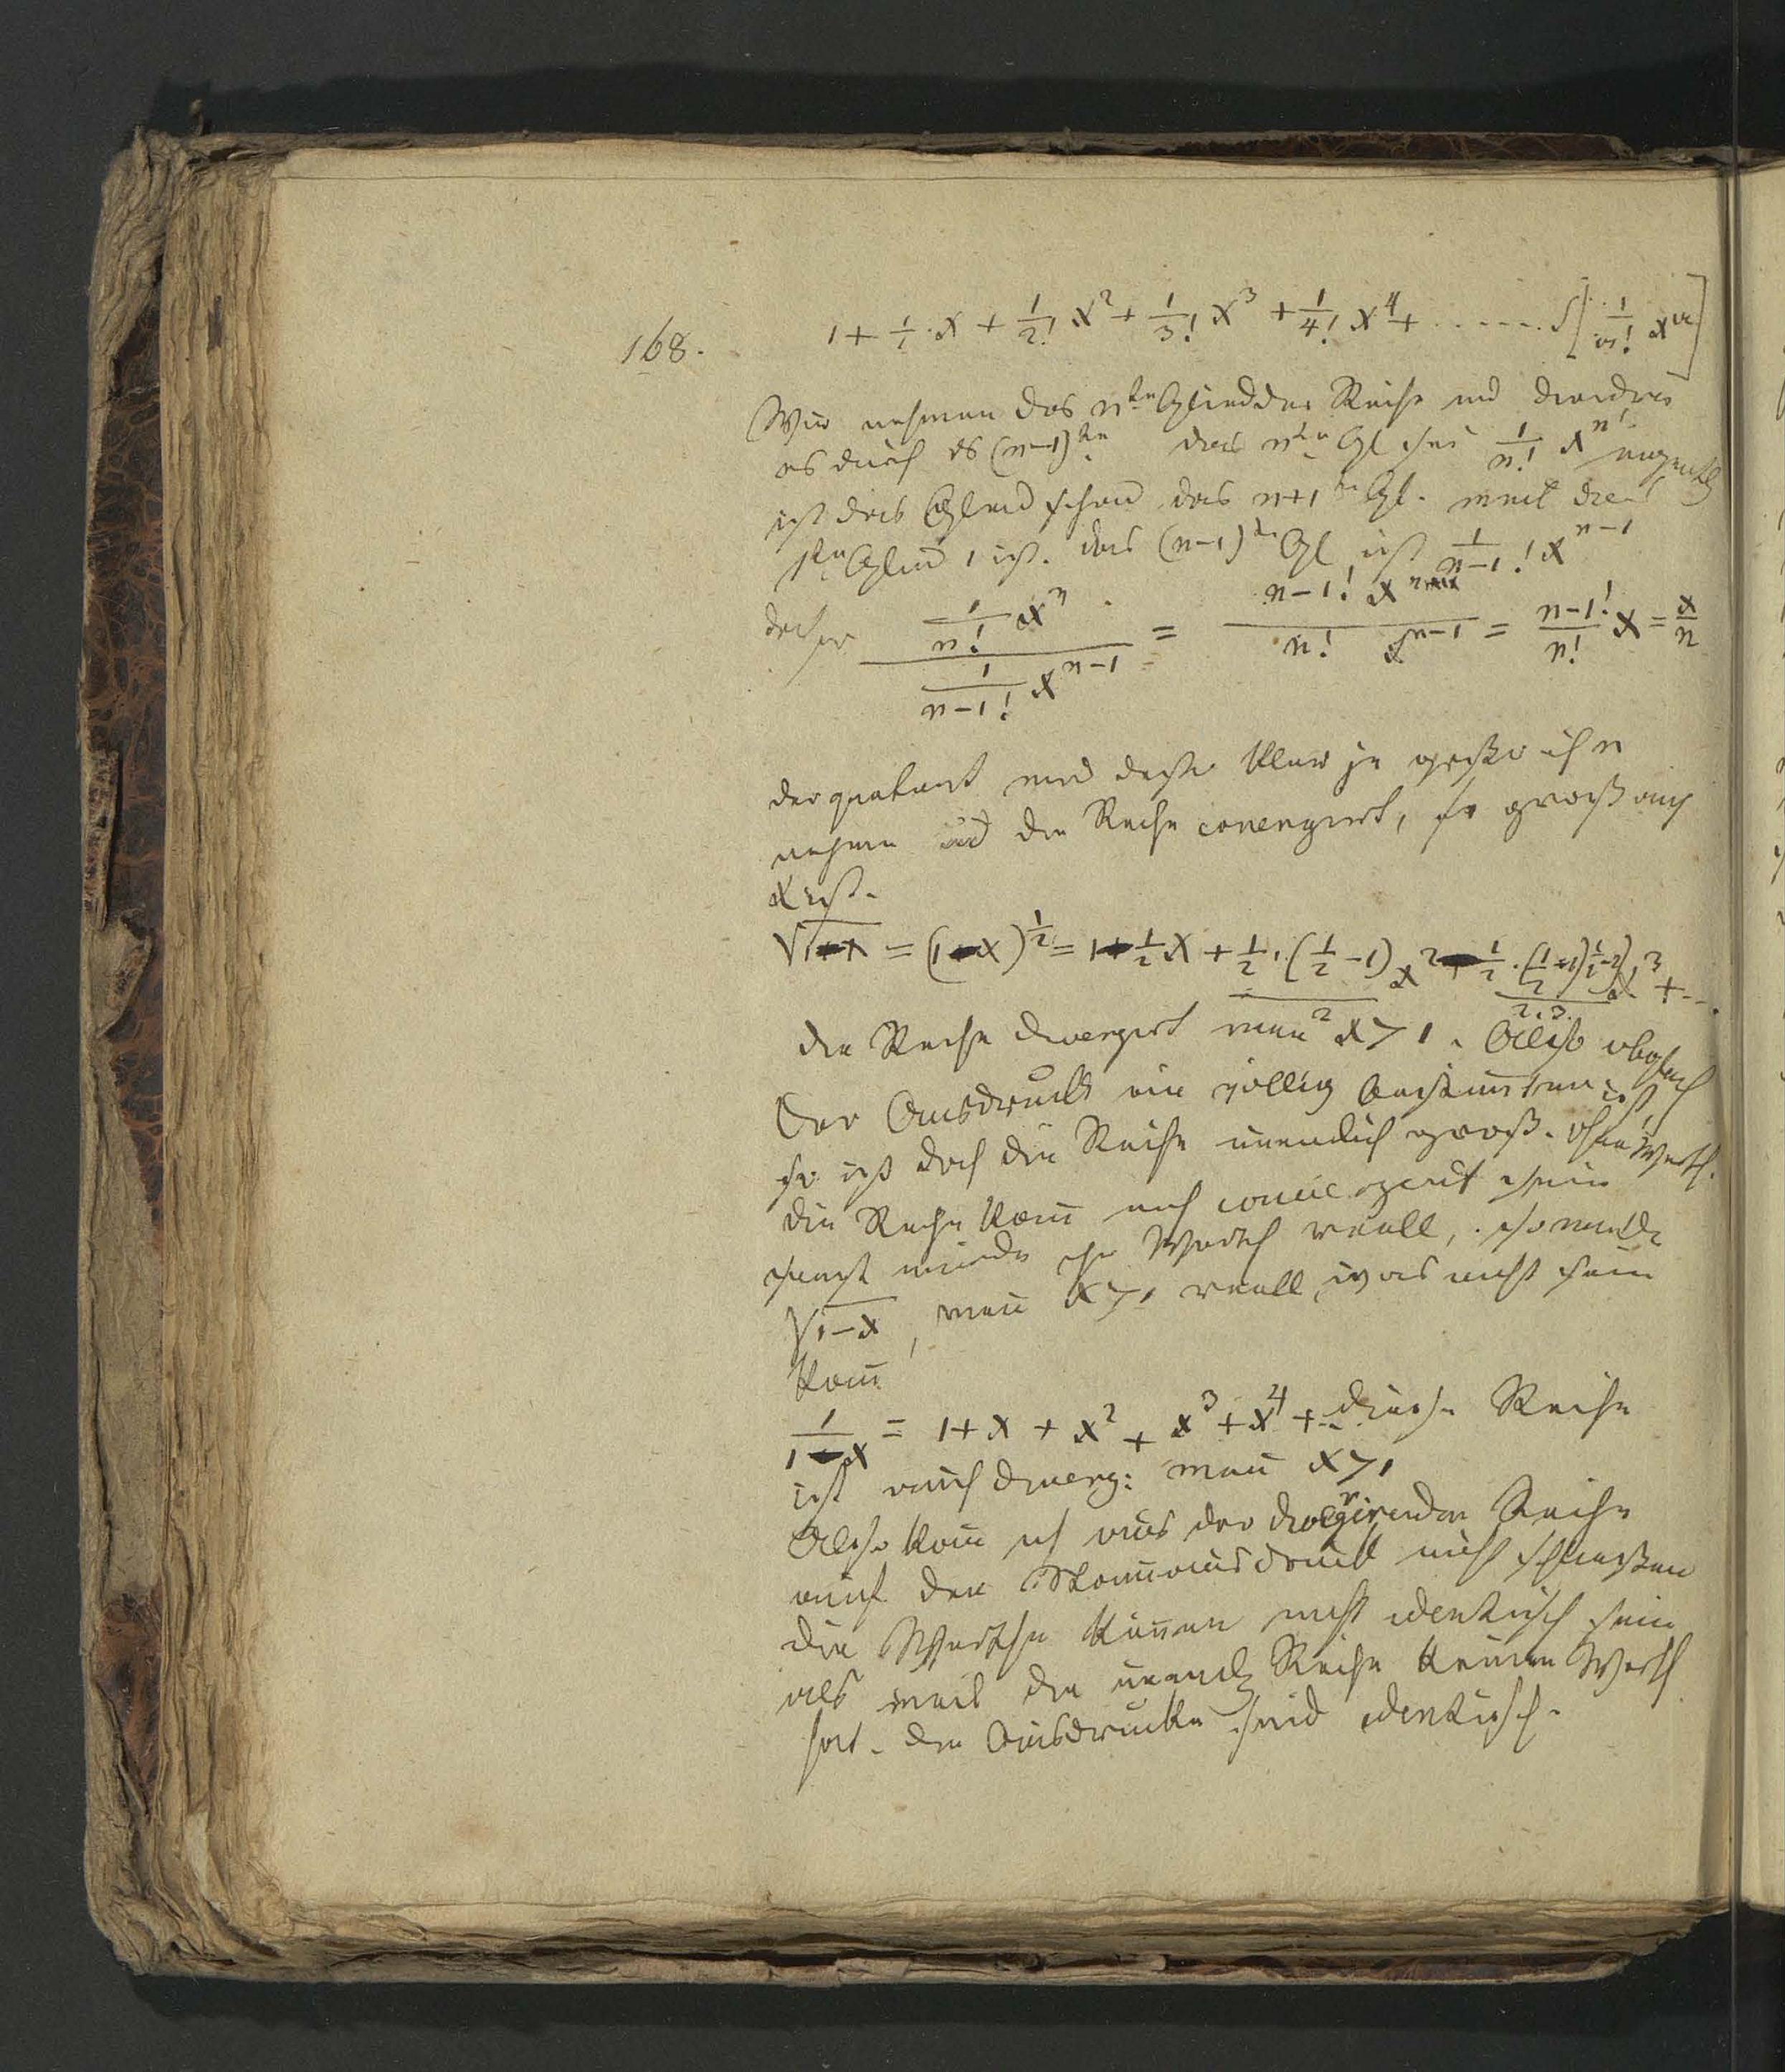 168.
1 + 1/1 · x + 1/2! x² + 1/3! x³ + 1/4! x⁴ + ...... S[1/n! xⁿ]
Wir nehmen das nte Glied der Reihe und dividiren
es durch ds (n−1)te das nte Gl sei 1/n! xⁿ eigentl
ist das Glied schon das n+1te Gl. weil das
1te Glied 1 ist. das (n−1)te Gl ist 1/n−1! x^{n−1}
daher (1/n! xⁿ) / (1/n−1! x^{n−1}) = n−1! xⁿ / n! x^{n−1} = n−1!/n! x = x/n
der quotient wird desto kleiner je größer ich n
nehme und die Reihe convergirt, so groß auch
x ist.
√1−x = (1−x)^{1/2} = 1−1/2 x + 1/2·(1/2−1)/2 x² − 1/2·(1/2−1)(1/2−2)/2.3. x³ + ...
die Reihe divergirt wen x > 1. Also obgleich
der Ausdruck ein völlig bestimter ist,
so ist doch die Reihe unendlich groß. ohne Werth.
die Reihe kan nicht convergent sein
sonst würde ihr Werth reell, so würde
√1−x, wen x > 1 reell, was nicht sein
kan
1/1−x = 1 + x + x² + x³ + x⁴ + .. diese Reihe
ist auch diverg: wen x > 1
Also kan ich aus der divergirenden Reihe
auf den Stamausdruck nicht schließen
die Werthe könen nicht identisch sein
als weil die unendl Reihe keinen Werth
hat. die Ausdrücke sind identisch.